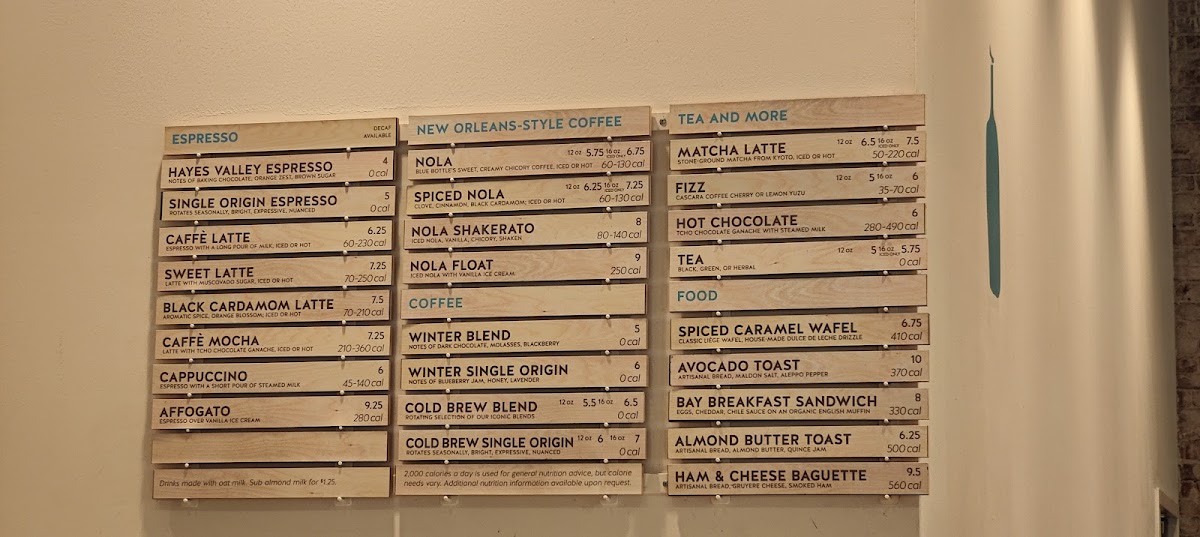 ESPRESSO
DECAF
AVAILABLE
HAYES VALLEY ESPRESSO 4
NOTES OF BAKING CHOCOLATE, ORANGE ZEST, BROWN SUGAR 0 cal
SINGLE ORIGIN ESPRESSO 5
ROTATES SEASONALLY, BRIGHT, EXPRESSIVE, NUANCED 0 cal
CAFFÈ LATTE 6.25
ESPRESSO WITH A LONG POUR OF MILK, ICED OR HOT 60-230 cal
SWEET LATTE 7.25
LATTE WITH MUSCOVADO SUGAR, ICED OR HOT 70-250 cal
BLACK CARDAMOM LATTE 7.5
AROMATIC SPICE, ORANGE BLOSSOM; ICED OR HOT 70-210 cal
CAFFÈ MOCHA 7.25
LATTE WITH TCHO CHOCOLATE GANACHE, ICED OR HOT 210-360 cal
CAPPUCCINO 6
ESPRESSO WITH A SHORT POUR OF STEAMED MILK 45-140 cal
AFFOGATO 9.25
ESPRESSO OVER VANILLA ICE CREAM 280 cal
Drinks made with oat milk. Sub almond milk for $1.25.
NEW ORLEANS-STYLE COFFEE
NOLA 12 oz 5.75 16 oz ICED ONLY 6.75
BLUE BOTTLE'S SWEET, CREAMY CHICORY COFFEE, ICED OR HOT 60-130 cal
SPICED NOLA 12 oz 6.25 16 oz ICED ONLY 7.25
CLOVE, CINNAMON, BLACK CARDAMOM; ICED OR HOT 60-130 cal
NOLA SHAKERATO 8
ICED NOLA, VANILLA, CHICORY, SHAKEN 80-140 cal
NOLA FLOAT 9
ICED NOLA WITH VANILLA ICE CREAM 250 cal
COFFEE
WINTER BLEND 5
NOTES OF DARK CHOCOLATE, MOLASSES, BLACKBERRY 0 cal
WINTER SINGLE ORIGIN 6
NOTES OF BLUEBERRY JAM, HONEY, LAVENDER 0 cal
COLD BREW BLEND 12 oz 5.5 16 oz 6.5
ROTATING SELECTION OF OUR ICONIC BLENDS 0 cal
COLD BREW SINGLE ORIGIN 12 oz 6 16 oz 7
ROTATES SEASONALLY, BRIGHT, EXPRESSIVE, NUANCED 0 cal
2,000 calories a day is used for general nutrition advice, but calorie
needs vary. Additional nutrition information available upon request.
TEA AND MORE
MATCHA LATTE 12 oz 6.5 16 oz ICED ONLY 7.5
STONE-GROUND MATCHA FROM KYOTO, ICED OR HOT 50-220 cal
FIZZ 12 oz 5 16 oz 6
CASCARA COFFEE CHERRY OR LEMON YUZU 35-70 cal
HOT CHOCOLATE 6
TCHO CHOCOLATE GANACHE WITH STEAMED MILK 280-490 cal
TEA 12 oz 5 16 oz ICED ONLY 5.75
BLACK, GREEN, OR HERBAL 0 cal
FOOD
SPICED CARAMEL WAFEL 6.75
CLASSIC LIÈGE WAFEL, HOUSE-MADE DULCE DE LECHE DRIZZLE 410 cal
AVOCADO TOAST 10
ARTISANAL BREAD, MALDON SALT, ALEPPO PEPPER 370 cal
BAY BREAKFAST SANDWICH 8
EGGS, CHEDDAR, CHILE SAUCE ON AN ORGANIC ENGLISH MUFFIN 330 cal
ALMOND BUTTER TOAST 6.25
ARTISANAL BREAD, ALMOND BUTTER, QUINCE JAM 500 cal
HAM & CHEESE BAGUETTE 9.5
ARTISANAL BREAD, GRUYERE CHEESE, SMOKED HAM 560 cal